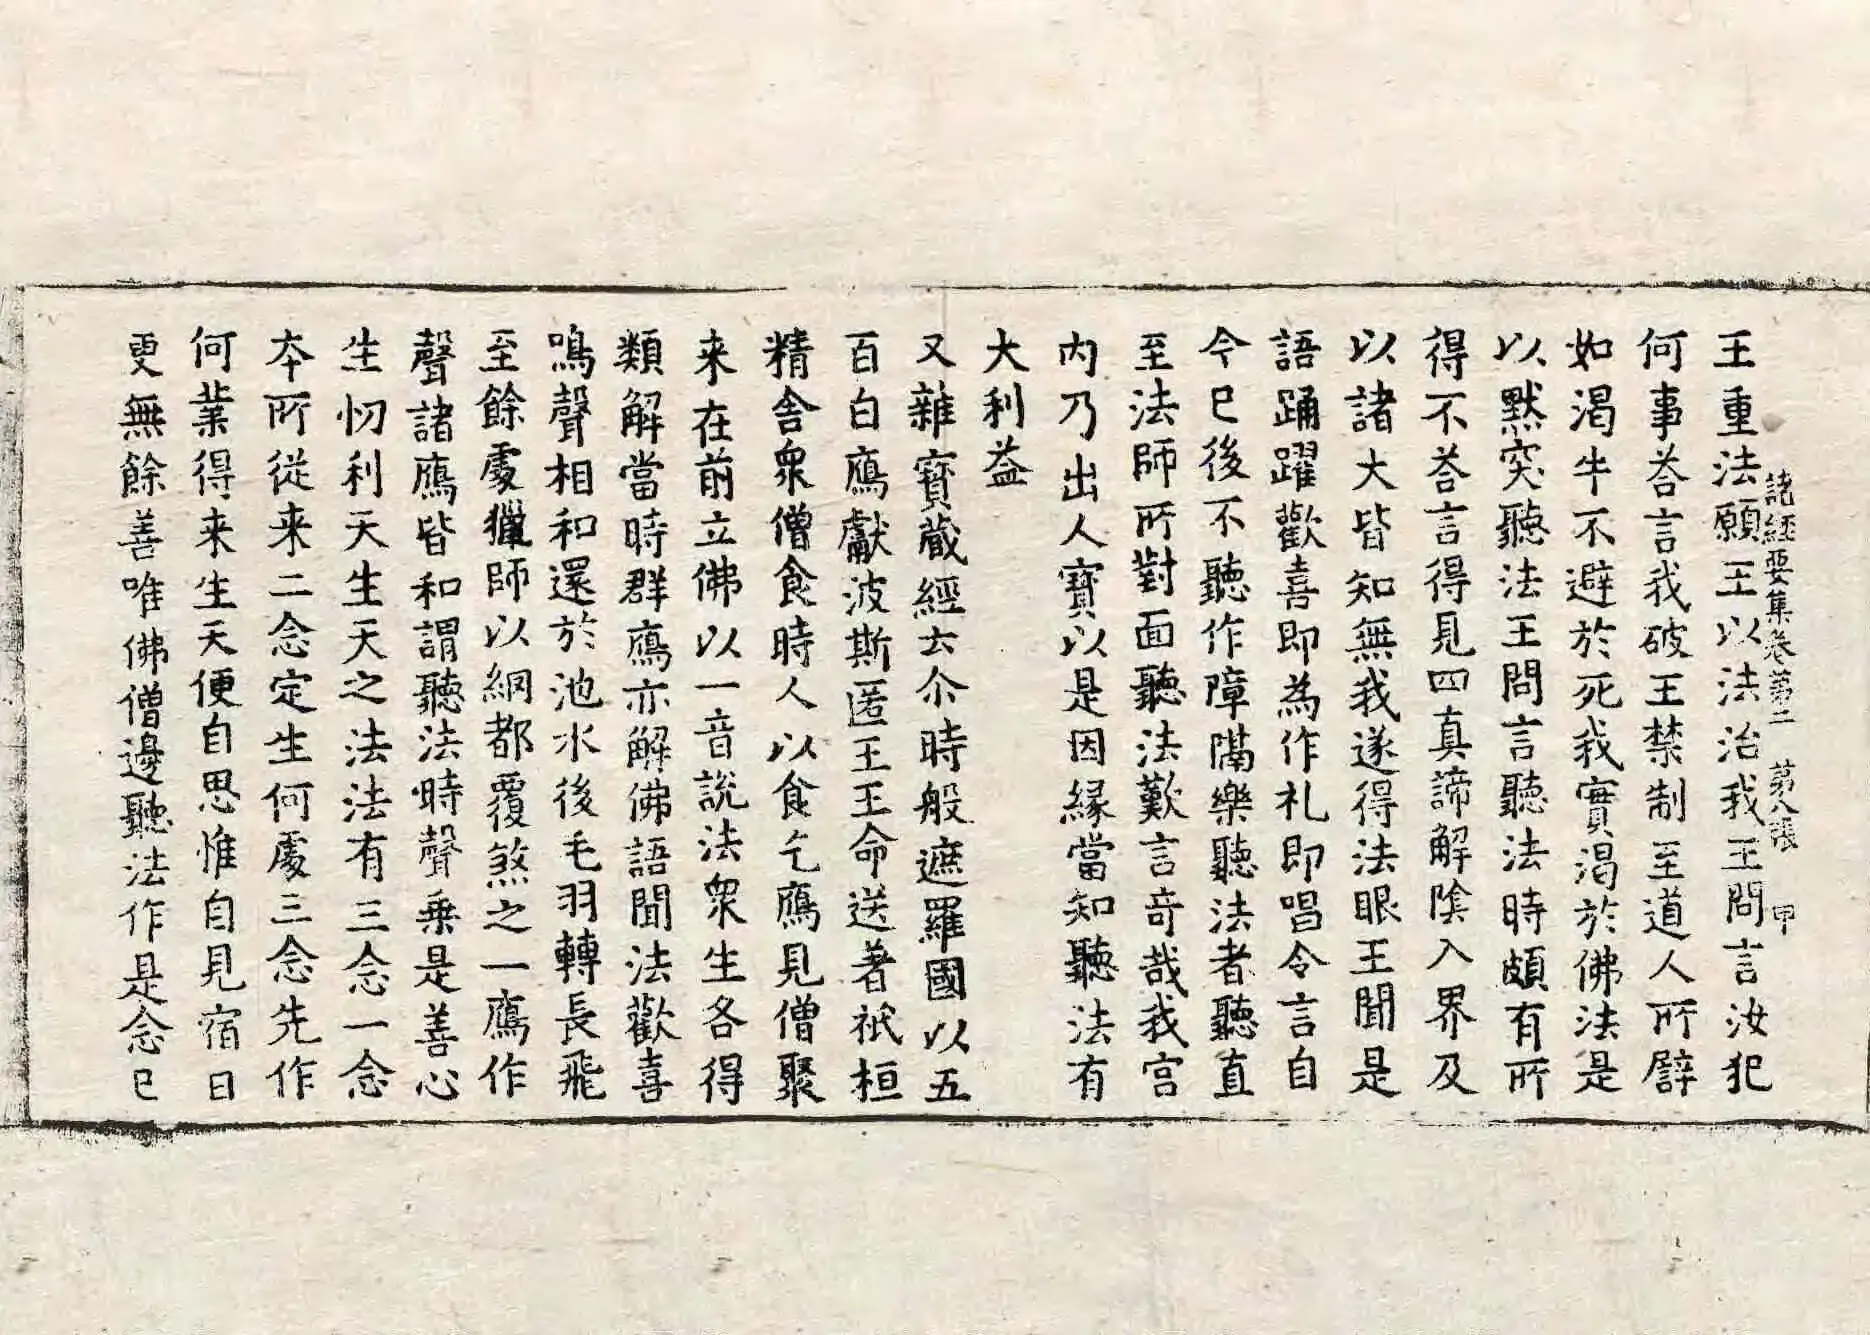 王重法願王以法治我王問言汝犯
諸經要集卷第二　第八張　甲
何事荅言我破王禁制至道人所聽
如渴牛不避於死我實渴於佛法是
以默突聽法王問言聽法時頗有所
得不荅言得見四真諦解陰入界及
以諸大皆知無我遂得法眼王聞是
語踊躍歡喜即為作礼即唱令言自
今已後不聽作障隔樂聽法者聽直
至法師所對面聽法歎言奇哉我宮
内乃出人寶以是因縁當知聽法有
大利益
又雜寶藏經云尒時般遮羅國以五
百白鴈獻波斯匿王王命送著祇桓
精舍衆僧食時人以食乞鴈見僧聚
来在前立佛以一音說法衆生各得
類解當時群鴈亦解佛語聞法歡喜
鳴聲相和還於池水後毛羽轉長飛
至餘處獵師以網都覆煞之一鴈作
聲諸鴈皆和謂聽法時聲乗是善心
生忉利天生天之法法有三念一念
本所從来二念定生何處三念先作
何業得来生天便自思惟自見宿日
更無餘善唯佛僧邊聽法作是念已